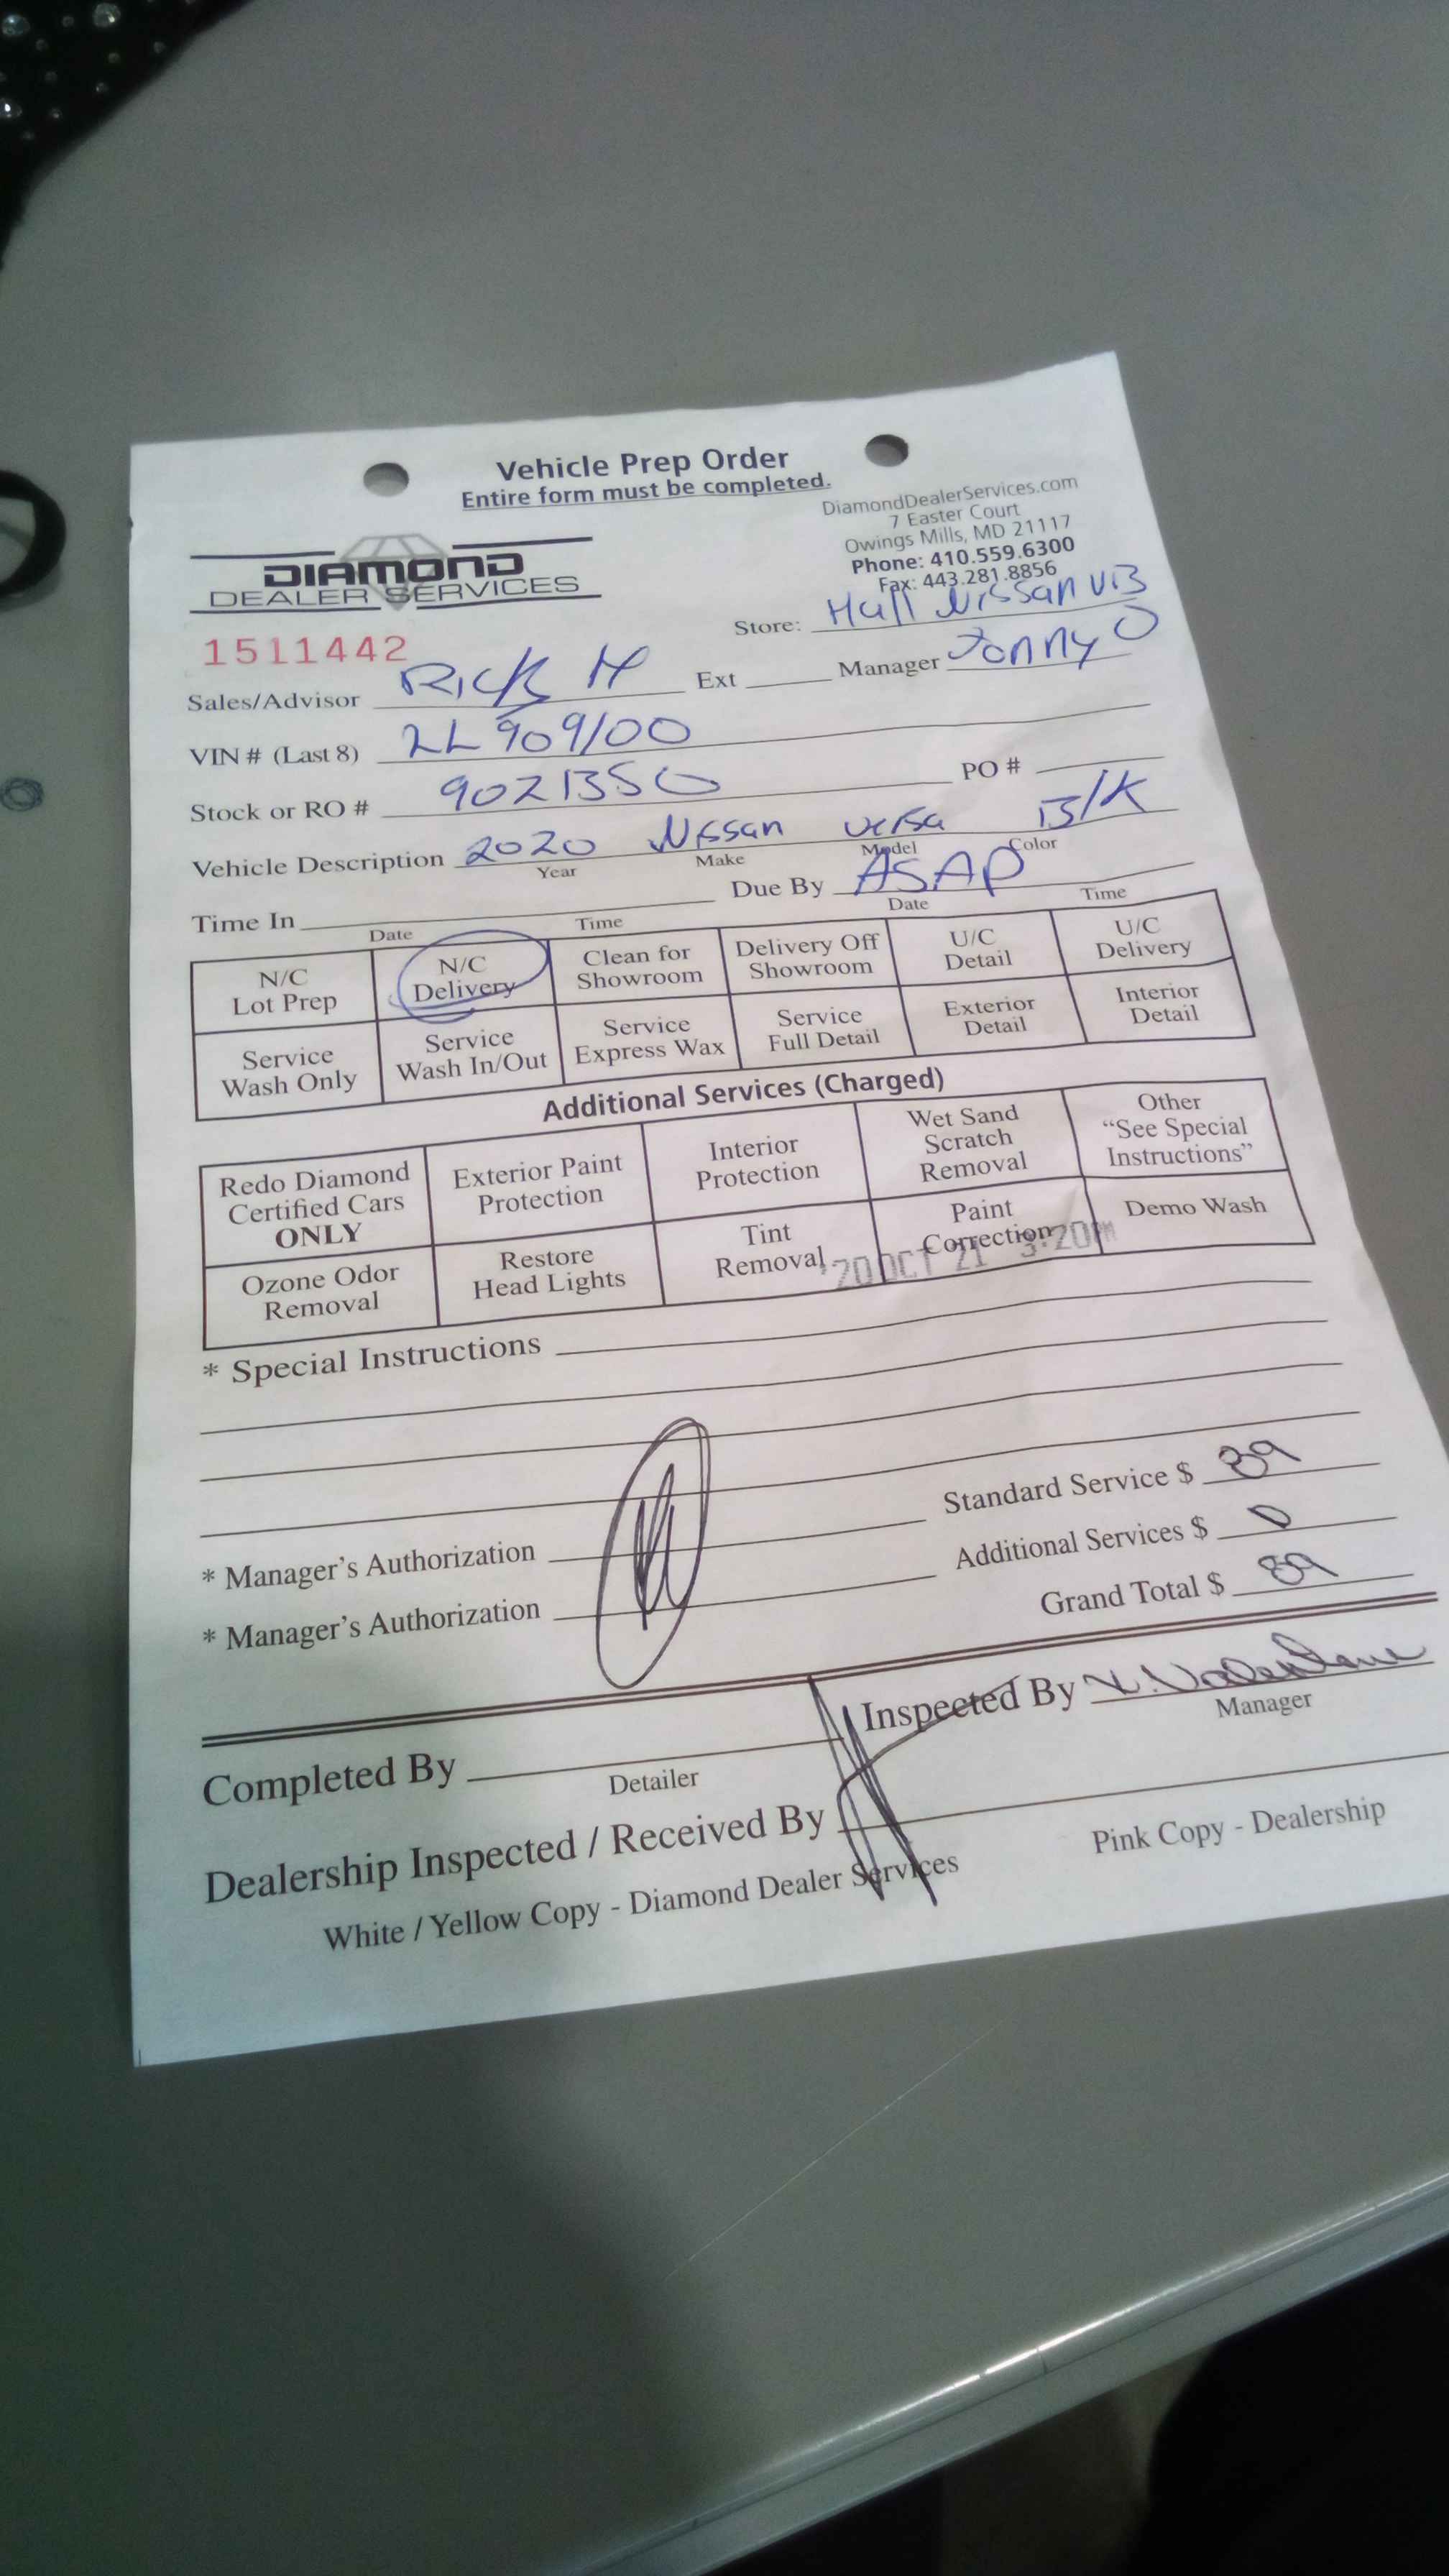 Vehicle Prep Order
Entire form must be completed.
DiamondDealerServices.com
7 Easter Court
Owings Mills, MD 21117
Phone: 410.559.6300
Fax: 443.281.8856
DIAMOND
DEALER SERVICES
Store: Hall Nissan VB
1511442
Sales/Advisor Rick H Ext Manager Jonny O
VIN # (Last 8) LL909100
Stock or RO # 9021350 PO #
Vehicle Description 2020 Nissan Versa Blk
Year Make Model Color
Time In Due By ASAP
Date Time Date Time
N/C Lot Prep N/C Delivery Clean for Showroom Delivery Off Showroom U/C Detail U/C Delivery
Service Wash Only Service Wash In/Out Service Express Wax Service Full Detail Exterior Detail Interior Detail
Additional Services (Charged)
Redo Diamond Certified Cars ONLY Exterior Paint Protection Interior Protection Wet Sand Scratch Removal Other "See Special Instructions"
Ozone Odor Removal Restore Head Lights Tint Removal Paint Correction Demo Wash
'20 OCT 21 3:20PM
* Special Instructions
Standard Service $ 89
* Manager's Authorization Additional Services $ 0
* Manager's Authorization Grand Total $ 89
Completed By Inspected By
Detailer Manager
Dealership Inspected / Received By
White / Yellow Copy - Diamond Dealer Services Pink Copy - Dealership